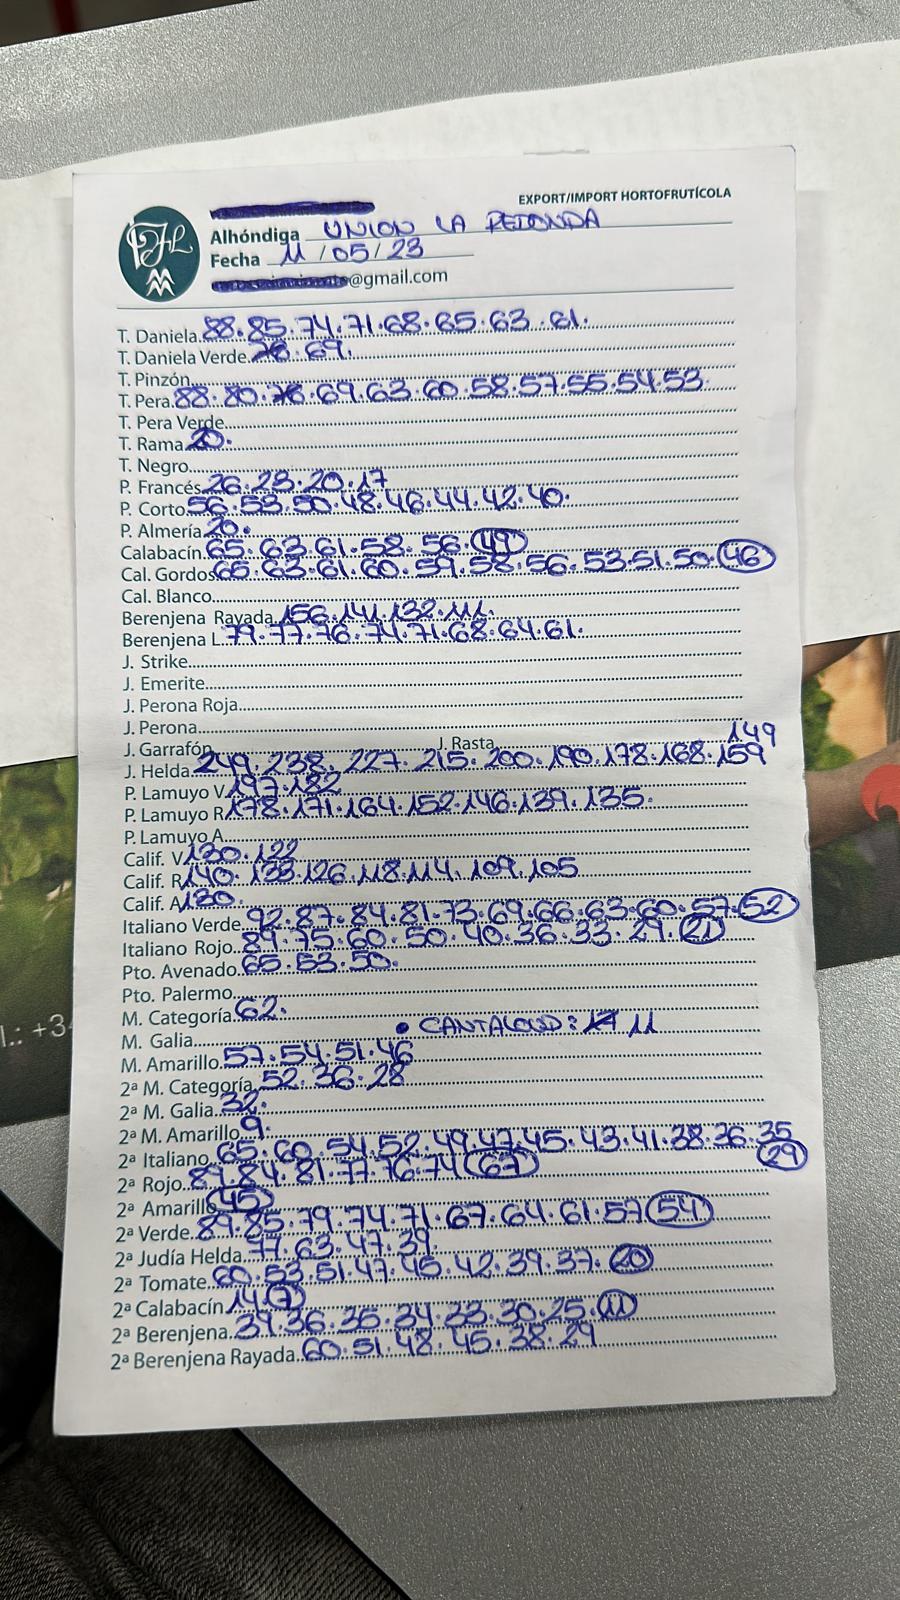 EXPORT/IMPORT HORTOFRUTÍCOLA
Alhóndiga UNION LA REDONDA
Fecha 11/05/23
@gmail.com
T. Daniela 88.85.74.71.68.65.63.61.
T. Daniela Verde 69.
T. Pinzón
T. Pera 88.80.69.63.60.58.57.55.54.53
T. Pera Verde
T. Rama 20.
T. Negro
P. Francés 26.23.20.17
P. Corto 56.53.50.48.46.44.42.40.
P. Almería 20.
Calabacín 65.63.61.58.56.49
Cal. Gordos 65.63.61.60.59.58.56.53.51.50.46
Cal. Blanco
Berenjena Rayada 156.141.132.111.
Berenjena L. 79.77.76.74.71.68.64.61.
J. Strike
J. Emerite
J. Perona Roja
J. Perona
J. Garrafón J. Rasta 149
J. Helda 249.238.227.215.200.190.178.168.159
P. Lamuyo V 197.182
P. Lamuyo R 178.171.164.152.146.139.135.
P. Lamuyo A
Calif. V 130.122
Calif. R 140.133.126.118.114.109.105
Calif. A 130.
Italiano Verde 92.87.84.81.73.69.66.63.60.57.52
Italiano Rojo 89.75.60.50.40.36.33.29.21
Pto. Avenado 65.53.50.
Pto. Palermo
M. Categoría 62.
M. Galia • CANTALOUD: 11
M. Amarillo 57.54.51.46
2ª M. Categoría 52.36.28
2ª M. Galia 32.
2ª M. Amarillo 9.
2ª Italiano 65.60.54.52.49.47.45.43.41.38.36.35
29
2ª Rojo 89.84.81.77.76.74.67
2ª Amarillo 45
2ª Verde 89.85.79.74.71.67.64.61.57.54
2ª Judía Helda 77.63.47.39.
2ª Tomate 60.53.51.47.45.42.39.37.20
2ª Calabacín 14.7
2ª Berenjena 39.36.35.34.33.30.25.11
2ª Berenjena Rayada 60.51.48.45.38.29